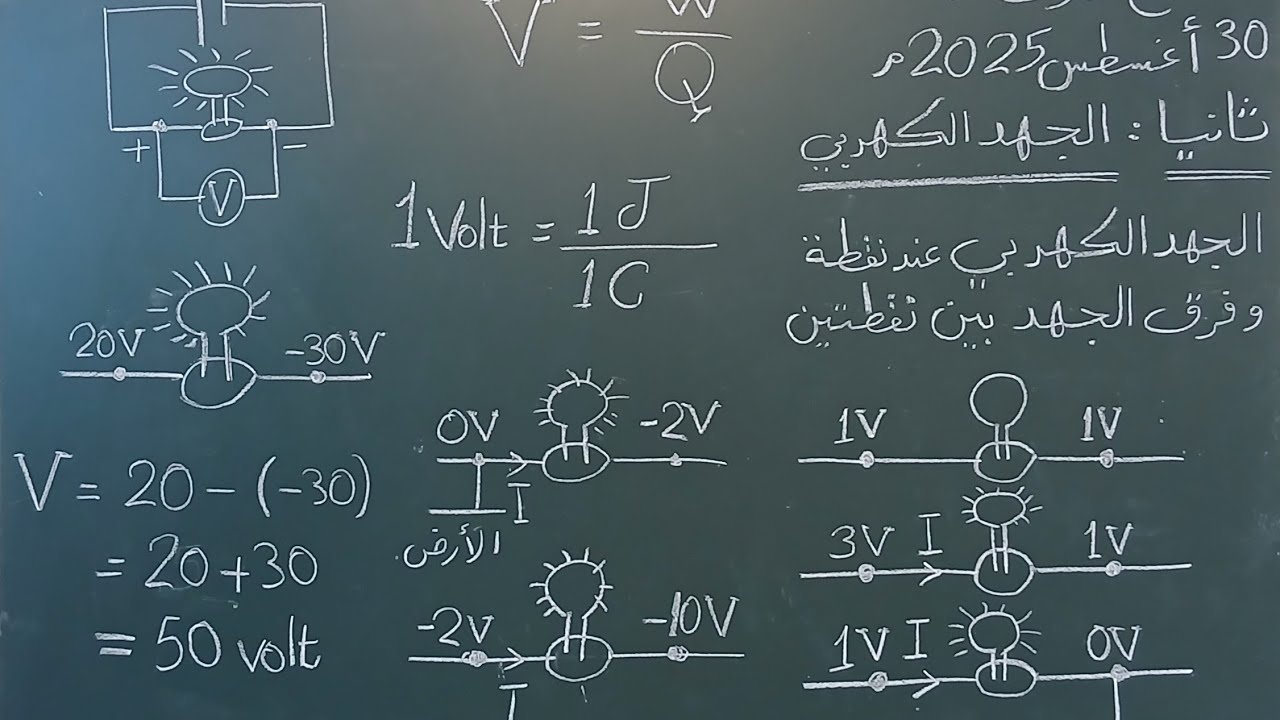 30 أغسطس 2025م
ثانيا : الجهد الكهربي
الجهد الكهربي عند نقطة
و فرق الجهد بين نقطتين
1V 1V
3V I 1V
1V I 0V
V = W/Q
1 Volt = 1J/1C
0V -2V
I
الأرض
-2V -10V
I
+ -
V
20V -30V
V = 20 - (-30)
= 20 + 30
= 50 volt